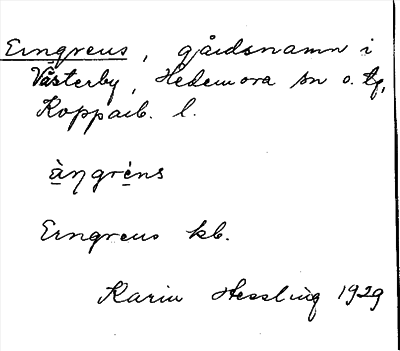 Erngreus, gårdsnamn i
Västerby, Hedemora sn o. tg,
Kopparb. l.
 àŋgréns
Erngreus kb.
Karin Hessling 1929